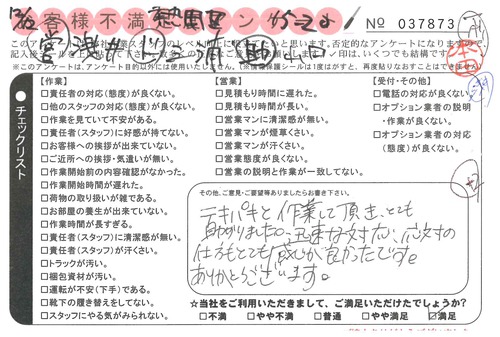 お客様不満
№ 037873
このアンケートは
チェックリスト
【作業】
□責任者の対応(態度)が良くない。
□他のスタッフの対応(態度)が良くない。
□作業を見ていて不安がある。
□責任者(スタッフ)に好感が持てない。
□お客様への挨拶が出来ていない。
□ご近所への挨拶・気遣いが無い。
□作業開始前の内容確認がなかった。
□作業開始時間が遅れた。
□荷物の取り扱いが雑である。
□お部屋の養生が出来ていない。
□作業時間が長すぎる。
□責任者(スタッフ)に清潔感が無い。
□責任者(スタッフ)が汗くさい。
□トラックが汚い。
□梱包資材が汚い。
□運転が不安(下手)である。
□靴下の履き替えをしてない。
□スタッフにやる気がみられない。
【営業】
□見積もり時間に遅れた。
□見積もり時間が長い。
□営業マンに清潔感が無い。
□営業マンが煙草くさい。
□営業マンが汗くさい。
□営業態度が良くない。
□営業の説明と作業が一致してない。
【受付・その他】
□電話の対応が良くない。
□オプション業者の説明
・作業が良くない。
□オプション業者の対応
(態度)が良くない。
その他、ご意見・ご要望等ありましたらお書き下さい。
テキパキと作業して頂き、とても
助かりました。迅速な対応、応対の
仕方もとても感じが良かったです。
ありがとうございます。
☆当社をご利用いただきまして、ご満足いただけたでしょうか?
□不満 □やや不満 □普通 □やや満足 ☑満足